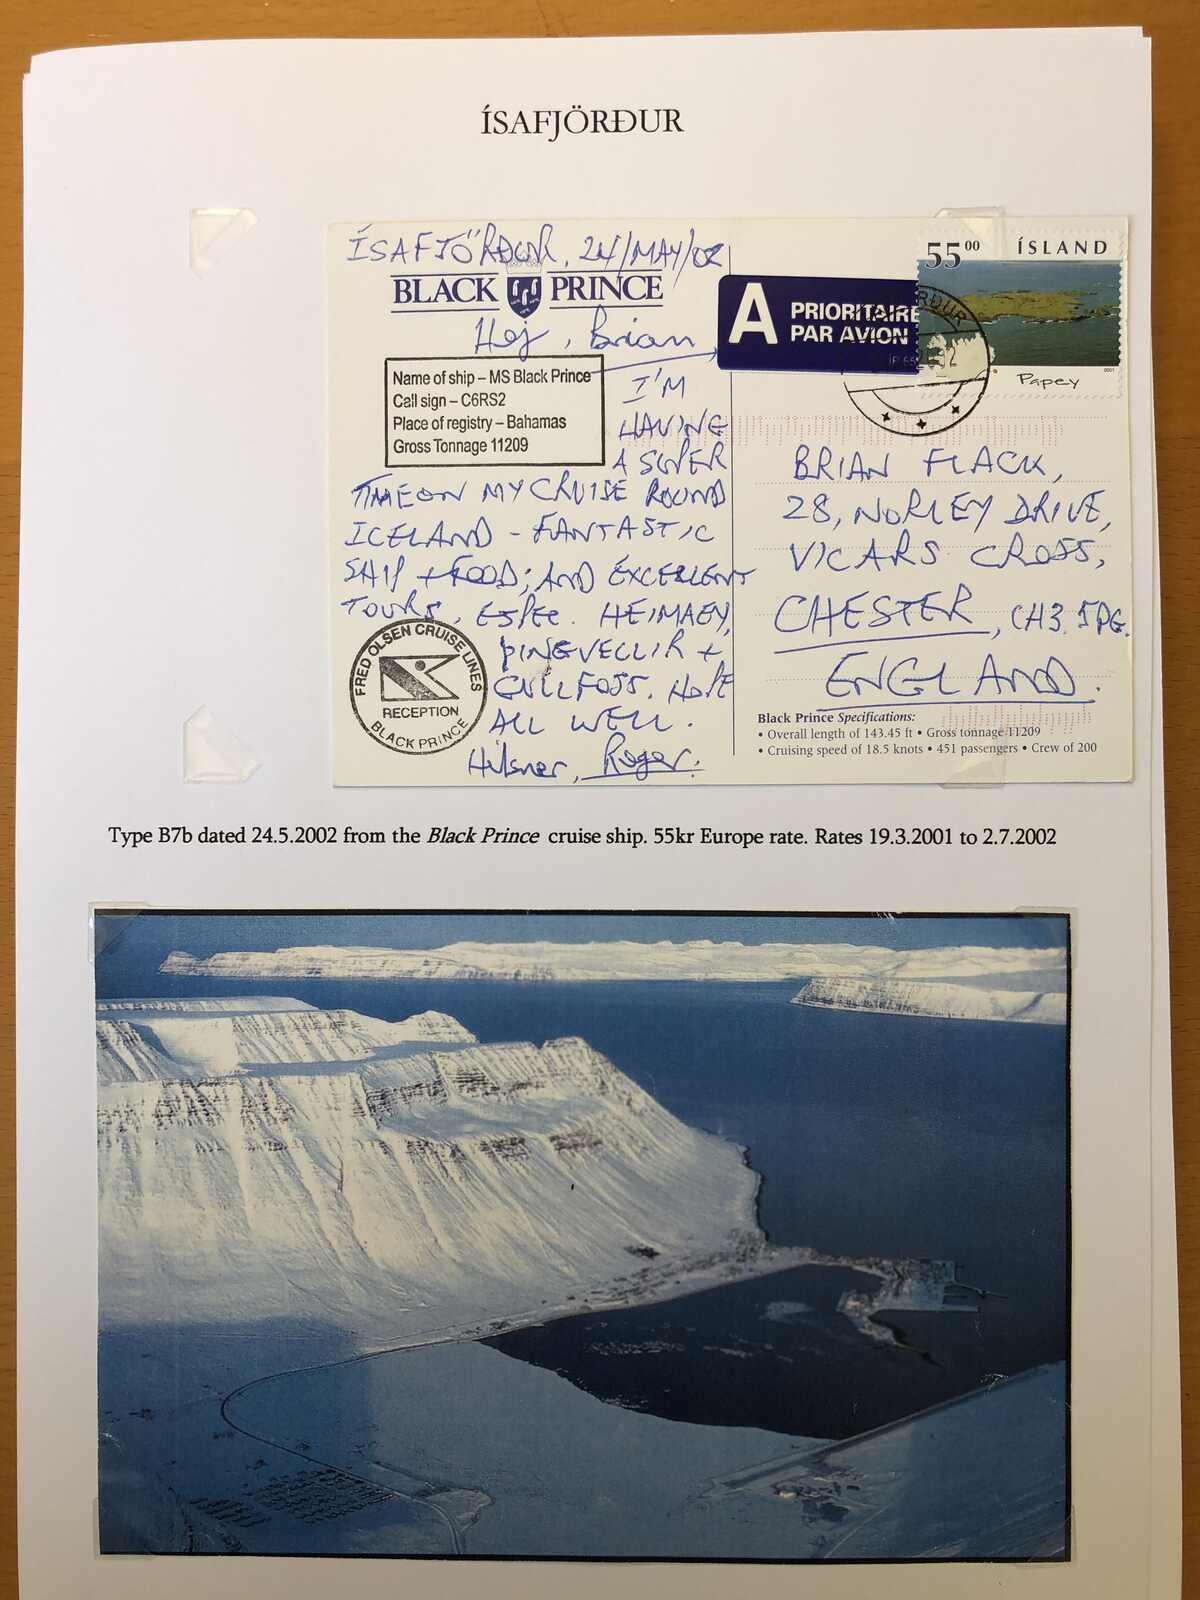 ÍSAFJÖRÐUR
ÍSAFJÖRÐUR, 24/MAY/02
BLACK PRINCE
Hej, Brian,
Name of ship – MS Black Prince
Call sign – C6RS2
Place of registry – Bahamas
Gross Tonnage 11209
I'M
HAVING
A SUPER
TIME ON MY CRUISE ROUND
ICELAND - FANTASTIC
SHIP + FOOD; AND EXCELLENT
TOURS, ESPEC. HEIMAEY,
ÞINGVELLIR +
GULLFOSS. HOPE
ALL WELL.
Hilsner, Roger.
FRED OLSEN CRUISE LINES
RECEPTION
BLACK PRINCE
A PRIORITAIRE
PAR AVION
55.00 ÍSLAND
Papey
2001
BRIAN FLACK,
28, NORLEY DRIVE,
VICARS CROSS,
CHESTER, CH3. 5PG.
ENGLAND.
Black Prince Specifications:
• Overall length of 143.45 ft • Gross tonnage 11209
• Cruising speed of 18.5 knots • 451 passengers • Crew of 200
Type B7b dated 24.5.2002 from the Black Prince cruise ship. 55kr Europe rate. Rates 19.3.2001 to 2.7.2002